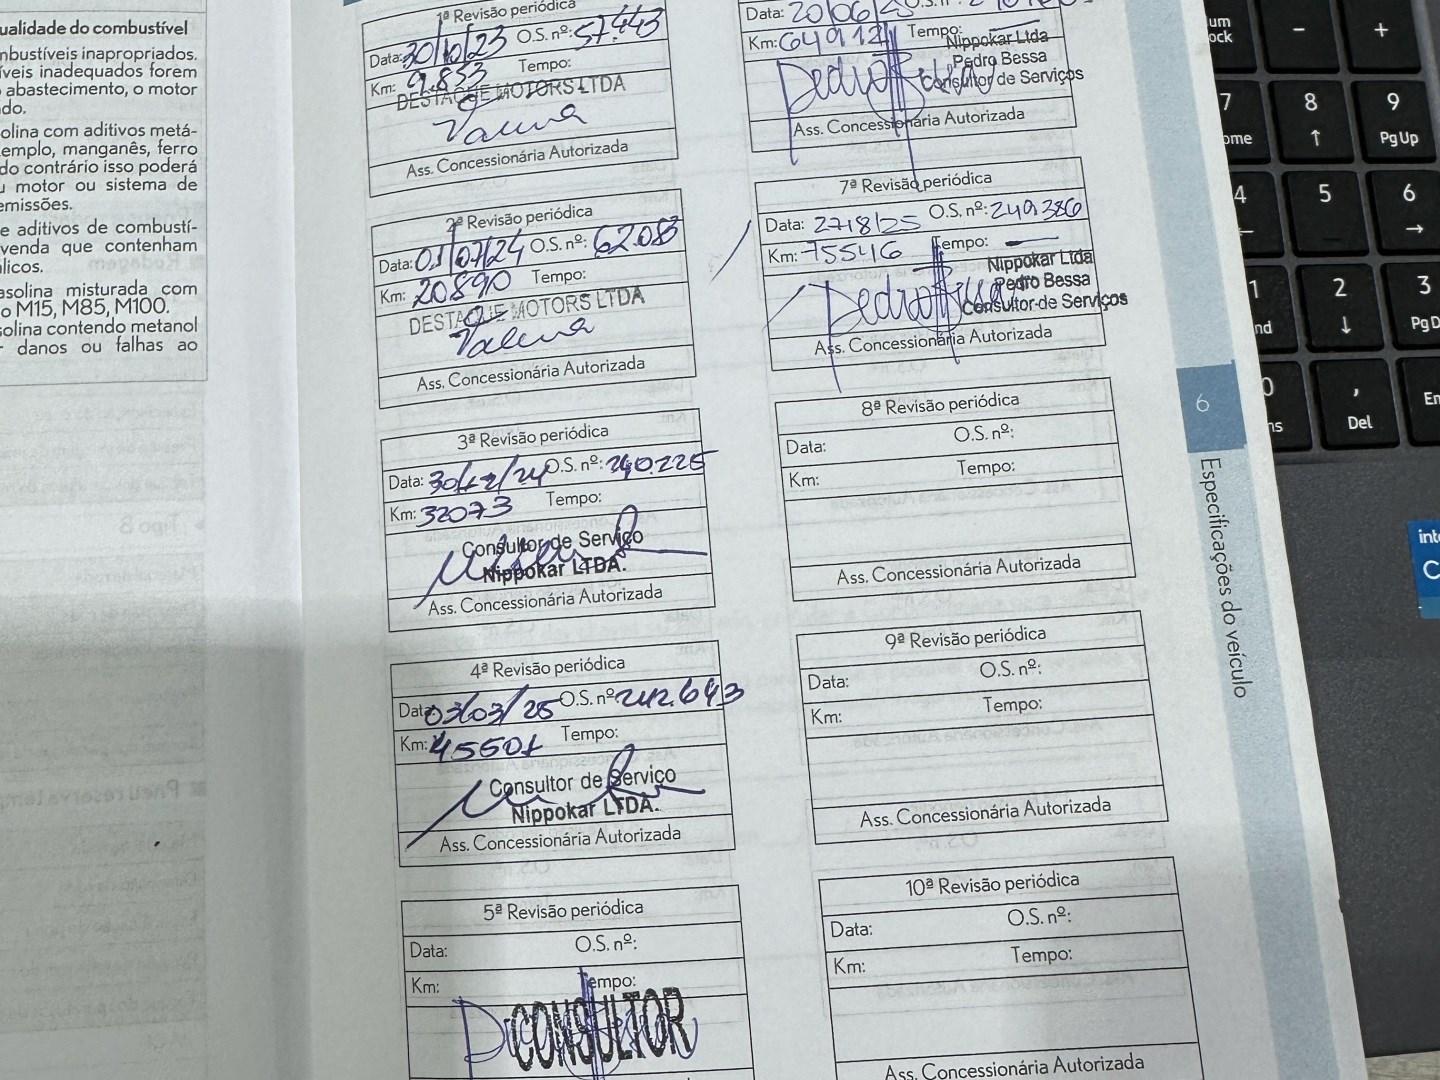 ualidade do combustível
nbustíveis inapropriados.
íveis inadequados forem
abastecimento, o motor
do.
olina com aditivos metá-
emplo, manganês, ferro
do contrário isso poderá
u motor ou sistema de
emissões.
e aditivos de combustí-
venda que contenham
licos.
asolina misturada com
o M15, M85, M100.
solina contendo metanol
r danos ou falhas ao
1ª Revisão periódica
Data: 30/10/23 O.S. nº: 57.443
Km: 9.853 Tempo:
DESTAQUE MOTORS LTDA
Ass. Concessionária Autorizada
2ª Revisão periódica
Data: 01/07/24 O.S. nº: 62.08
Km: 20890 Tempo:
DESTAQUE MOTORS LTDA
Ass. Concessionária Autorizada
3ª Revisão periódica
Data: 30/12/24 O.S. nº: 240.225
Km: 32073 Tempo:
Consultor de Serviço
Nippokar LTDA.
Ass. Concessionária Autorizada
4ª Revisão periódica
Data: 03/03/25 O.S. nº: 242.643
Km: 45501 Tempo:
Consultor de Serviço
Nippokar LTDA.
Ass. Concessionária Autorizada
5ª Revisão periódica
Data: O.S. nº:
Km: Tempo:
CONSULTOR
Data: 20/06/25 O.S. nº:
Km: 64912 Tempo:
Nippokar Ltda
Pedro Bessa
Consultor de Serviços
Ass. Concessionária Autorizada
7ª Revisão periódica
Data: 27/8/25 O.S. nº: 249.386
Km: 75546 Tempo:
Nippokar Ltda
Pedro Bessa
Consultor de Serviços
Ass. Concessionária Autorizada
8ª Revisão periódica
Data: O.S. nº:
Km: Tempo:
Ass. Concessionária Autorizada
9ª Revisão periódica
Data: O.S. nº:
Km: Tempo:
Ass. Concessionária Autorizada
10ª Revisão periódica
Data: O.S. nº:
Km: Tempo:
Ass. Concessionária Autorizada
6
Especificações do veículo
um
ock
- +
7 8 9
ome ↑ PgUp
4 5 6
← →
1 2 3
nd ↓ PgD
0 , En
ns Del
inte
C